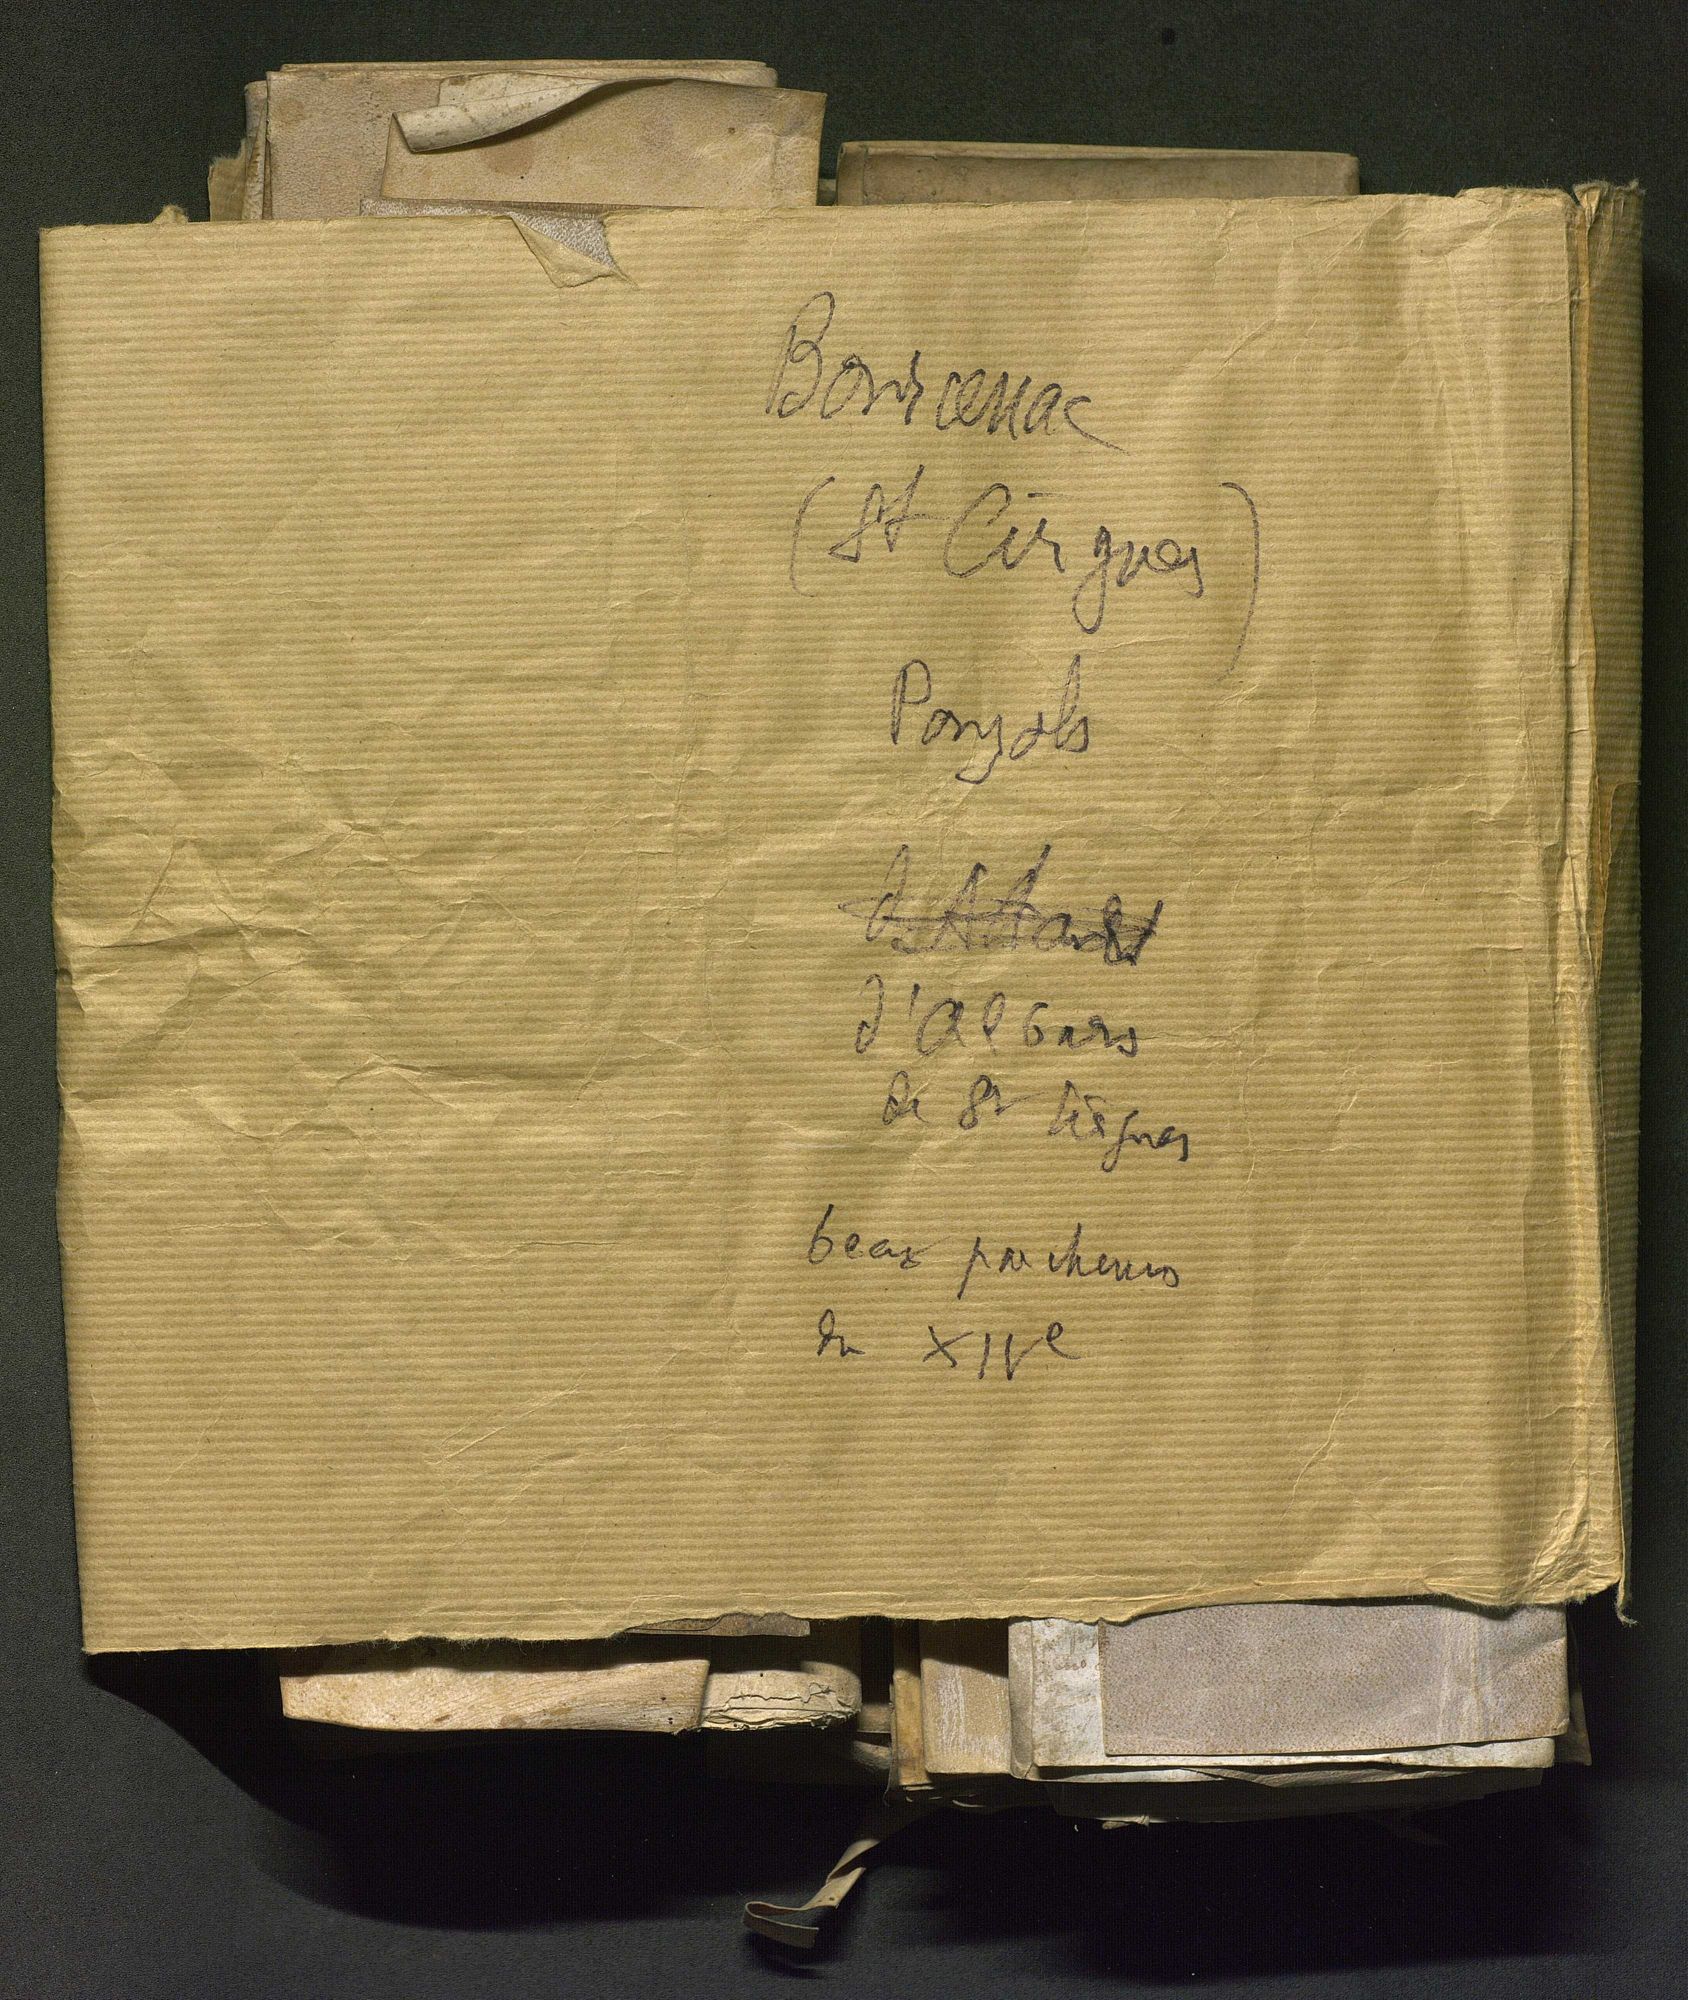 Bouscenac
(St Cirgues)
Pouzols
d'Albars
de St Cirgues
beaux parchemins
du XIVe